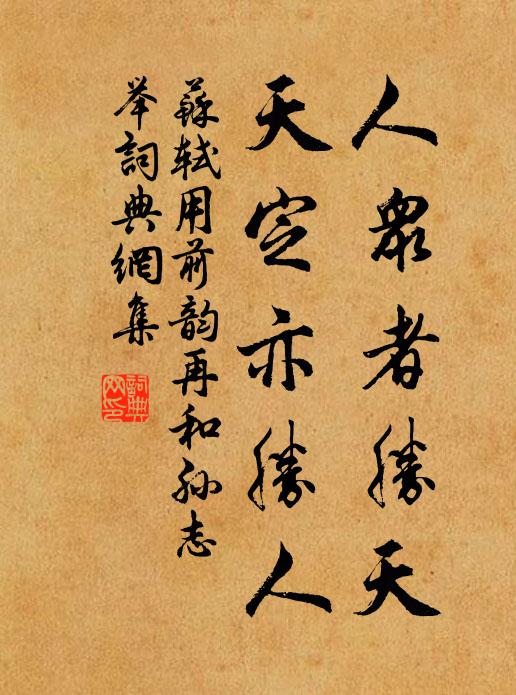 人衆者勝天
天定亦勝人
蘇軾用前韵再和孙志
举詞典網集
詞典网印